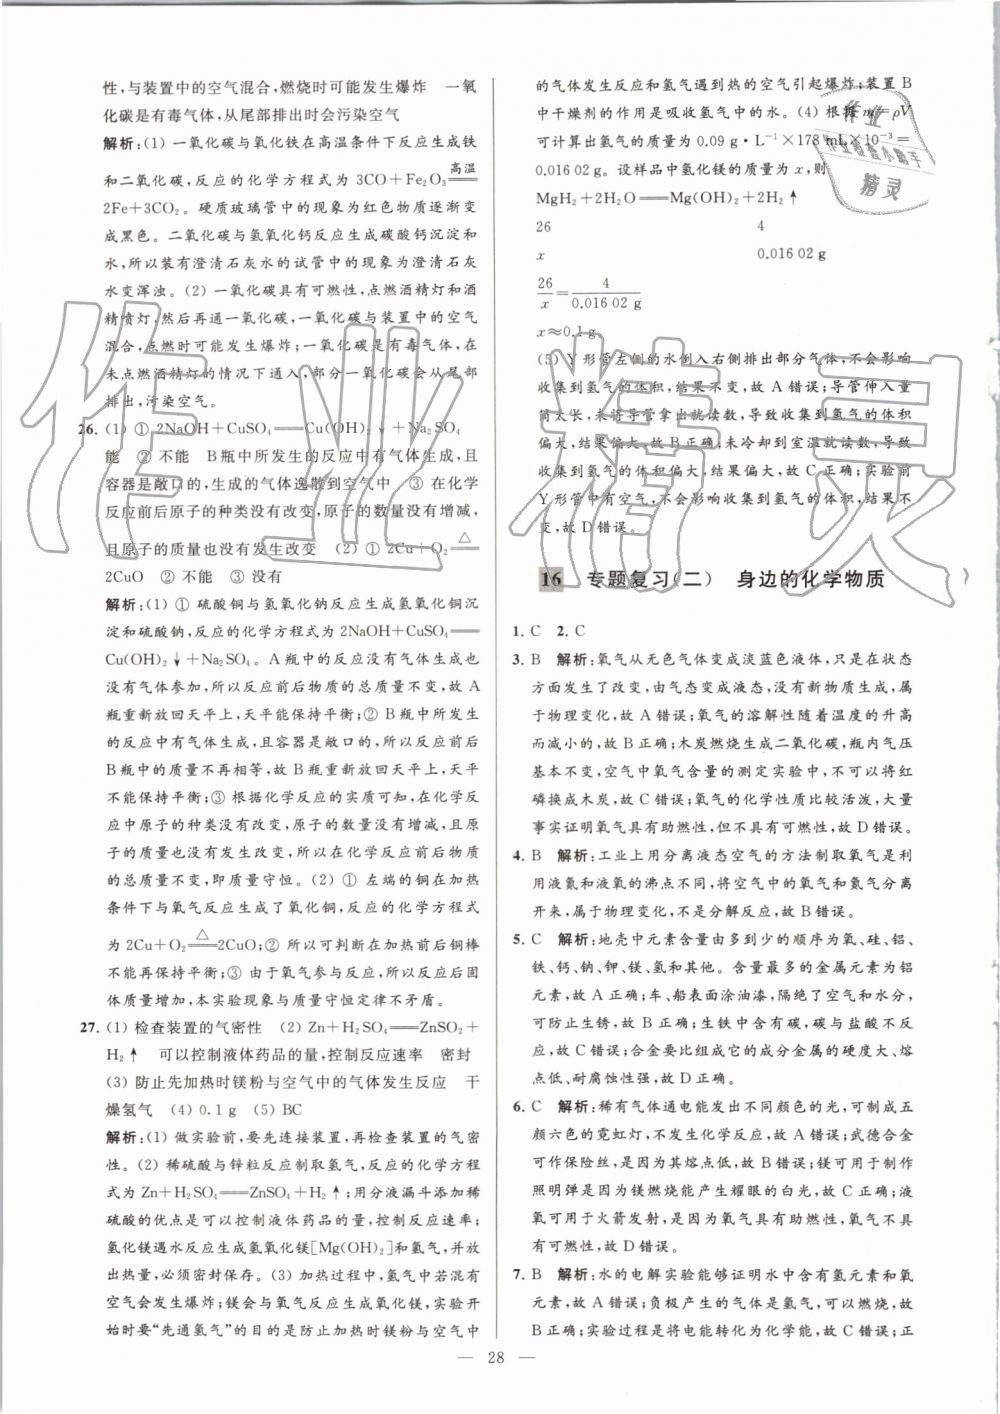 性,与装置中的空气混合,燃烧时可能发生爆炸　一氧
化碳是有毒气体,从尾部排出时会污染空气
解析:(1) 一氧化碳与氧化铁在高温条件下反应生成铁
和二氧化碳,反应的化学方程式为 3CO+Fe₂O₃ 高温══
2Fe+3CO₂。硬质玻璃管中的现象为红色物质逐渐变
成黑色。二氧化碳与氢氧化钙反应生成碳酸钙沉淀和
水,所以装有澄清石灰水的试管中的现象为澄清石灰
水变浑浊。(2) 一氧化碳具有可燃性,点燃酒精灯和酒
精喷灯,然后再通一氧化碳,一氧化碳与装置中的空气
混合,点燃时可能发生爆炸;一氧化碳是有毒气体,在
未点燃酒精灯的情况下通入,部分一氧化碳会从尾部
排出,污染空气。
26. (1) ① 2NaOH+CuSO₄══Cu(OH)₂↓+Na₂SO₄
能　② 不能　B瓶中所发生的反应中有气体生成,且
容器是敞口的,生成的气体逸散到空气中　③ 在化学
反应前后原子的种类没有改变,原子的数量没有增减,
且原子的质量也没有发生改变　(2) ① 2Cu+O₂ △══
2CuO　② 不能　③ 没有
解析:(1) ① 硫酸铜与氢氧化钠反应生成氢氧化铜沉
淀和硫酸钠,反应的化学方程式为 2NaOH+CuSO₄══
Cu(OH)₂↓+Na₂SO₄。A瓶中的反应没有气体生成也
没有气体参加,所以反应前后物质的总质量不变,故 A
瓶重新放回天平上,天平能保持平衡;② B瓶中所发生
的反应中有气体生成,且容器是敞口的,所以反应前后
B瓶中的质量不再相等,故 B瓶重新放回天平上,天平
不能保持平衡;③ 根据化学反应的实质可知,在化学反
应中原子的种类没有改变,原子的数量没有增减,且原
子的质量也没有发生改变,所以在化学反应前后物质
的总质量不变,即质量守恒。(2) ① 左端的铜在加热
条件下与氧气反应生成了氧化铜,反应的化学方程式
为 2Cu+O₂ △══2CuO;② 所以可判断在加热前后铜棒
不能再保持平衡;③ 由于氧气参与反应,所以反应后固
体质量增大,本实验现象与质量守恒定律不矛盾。
27. (1) 检查装置的气密性　(2) Zn+H₂SO₄══ZnSO₂+
H₂↑　可以控制液体药品的量,控制反应速率　密封
(3) 防止先加热时镁粉与空气中的气体发生反应　干
燥氢气　(4) 0.1 g　(5) BC
解析:(1) 做实验前,要先连接装置,再检查装置的气密
性。(2) 稀硫酸与锌粒反应制取氢气,反应的化学方程
式为 Zn+H₂SO₄══ZnSO₄+H₂↑;用分液漏斗添加稀
硫酸的优点是可以控制液体药品的量,控制反应速率;
氢化镁遇水反应生成氢氧化镁[Mg(OH)₂]和氢气,并放
出热量,必须密封保存。(3) 加热过程中,氢气中若混有
空气会发生爆炸;镁会与氧气反应生成氧化镁,实验开
始时要“先通氢气”的目的是防止加热时镁粉与空气中
的气体发生反应和氢气遇到热的空气引起爆炸;装置 B
中干燥剂的作用是吸收氢气中的水。(4) 根据 m=ρV
可计算出氢气的质量为 0.09 g·L⁻¹×178 mL×10⁻³=
0.016 02 g。设样品中氢化镁的质量为 x,则
MgH₂+2H₂O══Mg(OH)₂+2H₂↑
26　4
x　0.016 02 g
26/x=4/0.016 02 g
x≈0.1 g
(5) Y形管左侧的水倒入右侧排出部分气体,不会影响
收集到氢气的体积,结果不变,故 A 错误;导管伸入量
筒太长,未将导管拿出就读数,导致收集到氢气的体积
偏大,结果偏大,故 B 正确;未冷却到室温就读数,导致
收集到氢气的体积偏大,结果偏大,故 C 正确;实验前
Y形管中有空气,不会影响收集到氢气的体积,结果不
变,故 D 错误。
16　专题复习(二)　身边的化学物质
1. C　2. C
3. B　解析:氧气从无色气体变成淡蓝色液体,只是在状态
方面发生了改变,由气态变成液态,没有新物质生成,属
于物理变化,故 A 错误;氧气的溶解性随着温度的升高
而减小的,故 B 正确;木炭燃烧生成二氧化碳,瓶内气压
基本不变,空气中氧气含量的测定实验中,不可以将红
磷换成木炭,故 C 错误;氧气的化学性质比较活泼,大量
事实证明氧气具有助燃性,但不具有可燃性,故 D 错误。
4. B　解析:工业上用分离液态空气的方法制取氧气是利
用液氮和液氧的沸点不同,将空气中的氧气和氮气分离
开来,属于物理变化,不是分解反应,故 B 错误。
5. C　解析:地壳中元素含量由多到少的顺序为氧、硅、铝、
铁、钙、钠、钾、镁、氢和其他。含量最多的金属元素为铝
元素,故 A 正确;车、船表面涂油漆,隔绝了空气和水分,
可防止生锈,故 B 正确;生铁中含有碳,碳与盐酸不反
应,故 C 错误;合金要比组成它的成分金属的硬度大、熔
点低、耐腐蚀性强,故 D 正确。
6. C　解析:稀有气体通电能发出不同颜色的光,可制成五
颜六色的霓虹灯,不发生化学反应,故 A 错误;武德合金
可作保险丝,是因为其熔点低,故 B 错误;镁可用于制作
照明弹是因为镁燃烧能产生耀眼的白光,故 C 正确;液
氧可用于火箭发射,是因为氧气具有助燃性,氧气不具
有可燃性,故 D 错误。
7. B　解析:水的电解实验能够证明水中含有氢元素和氧
元素,故 A 错误;负极产生的气体是氢气,可以燃烧,故
B 正确;实验过程是将电能转化为化学能,故 C 错误;正
— 28 —
作业精灵
作业
精灵